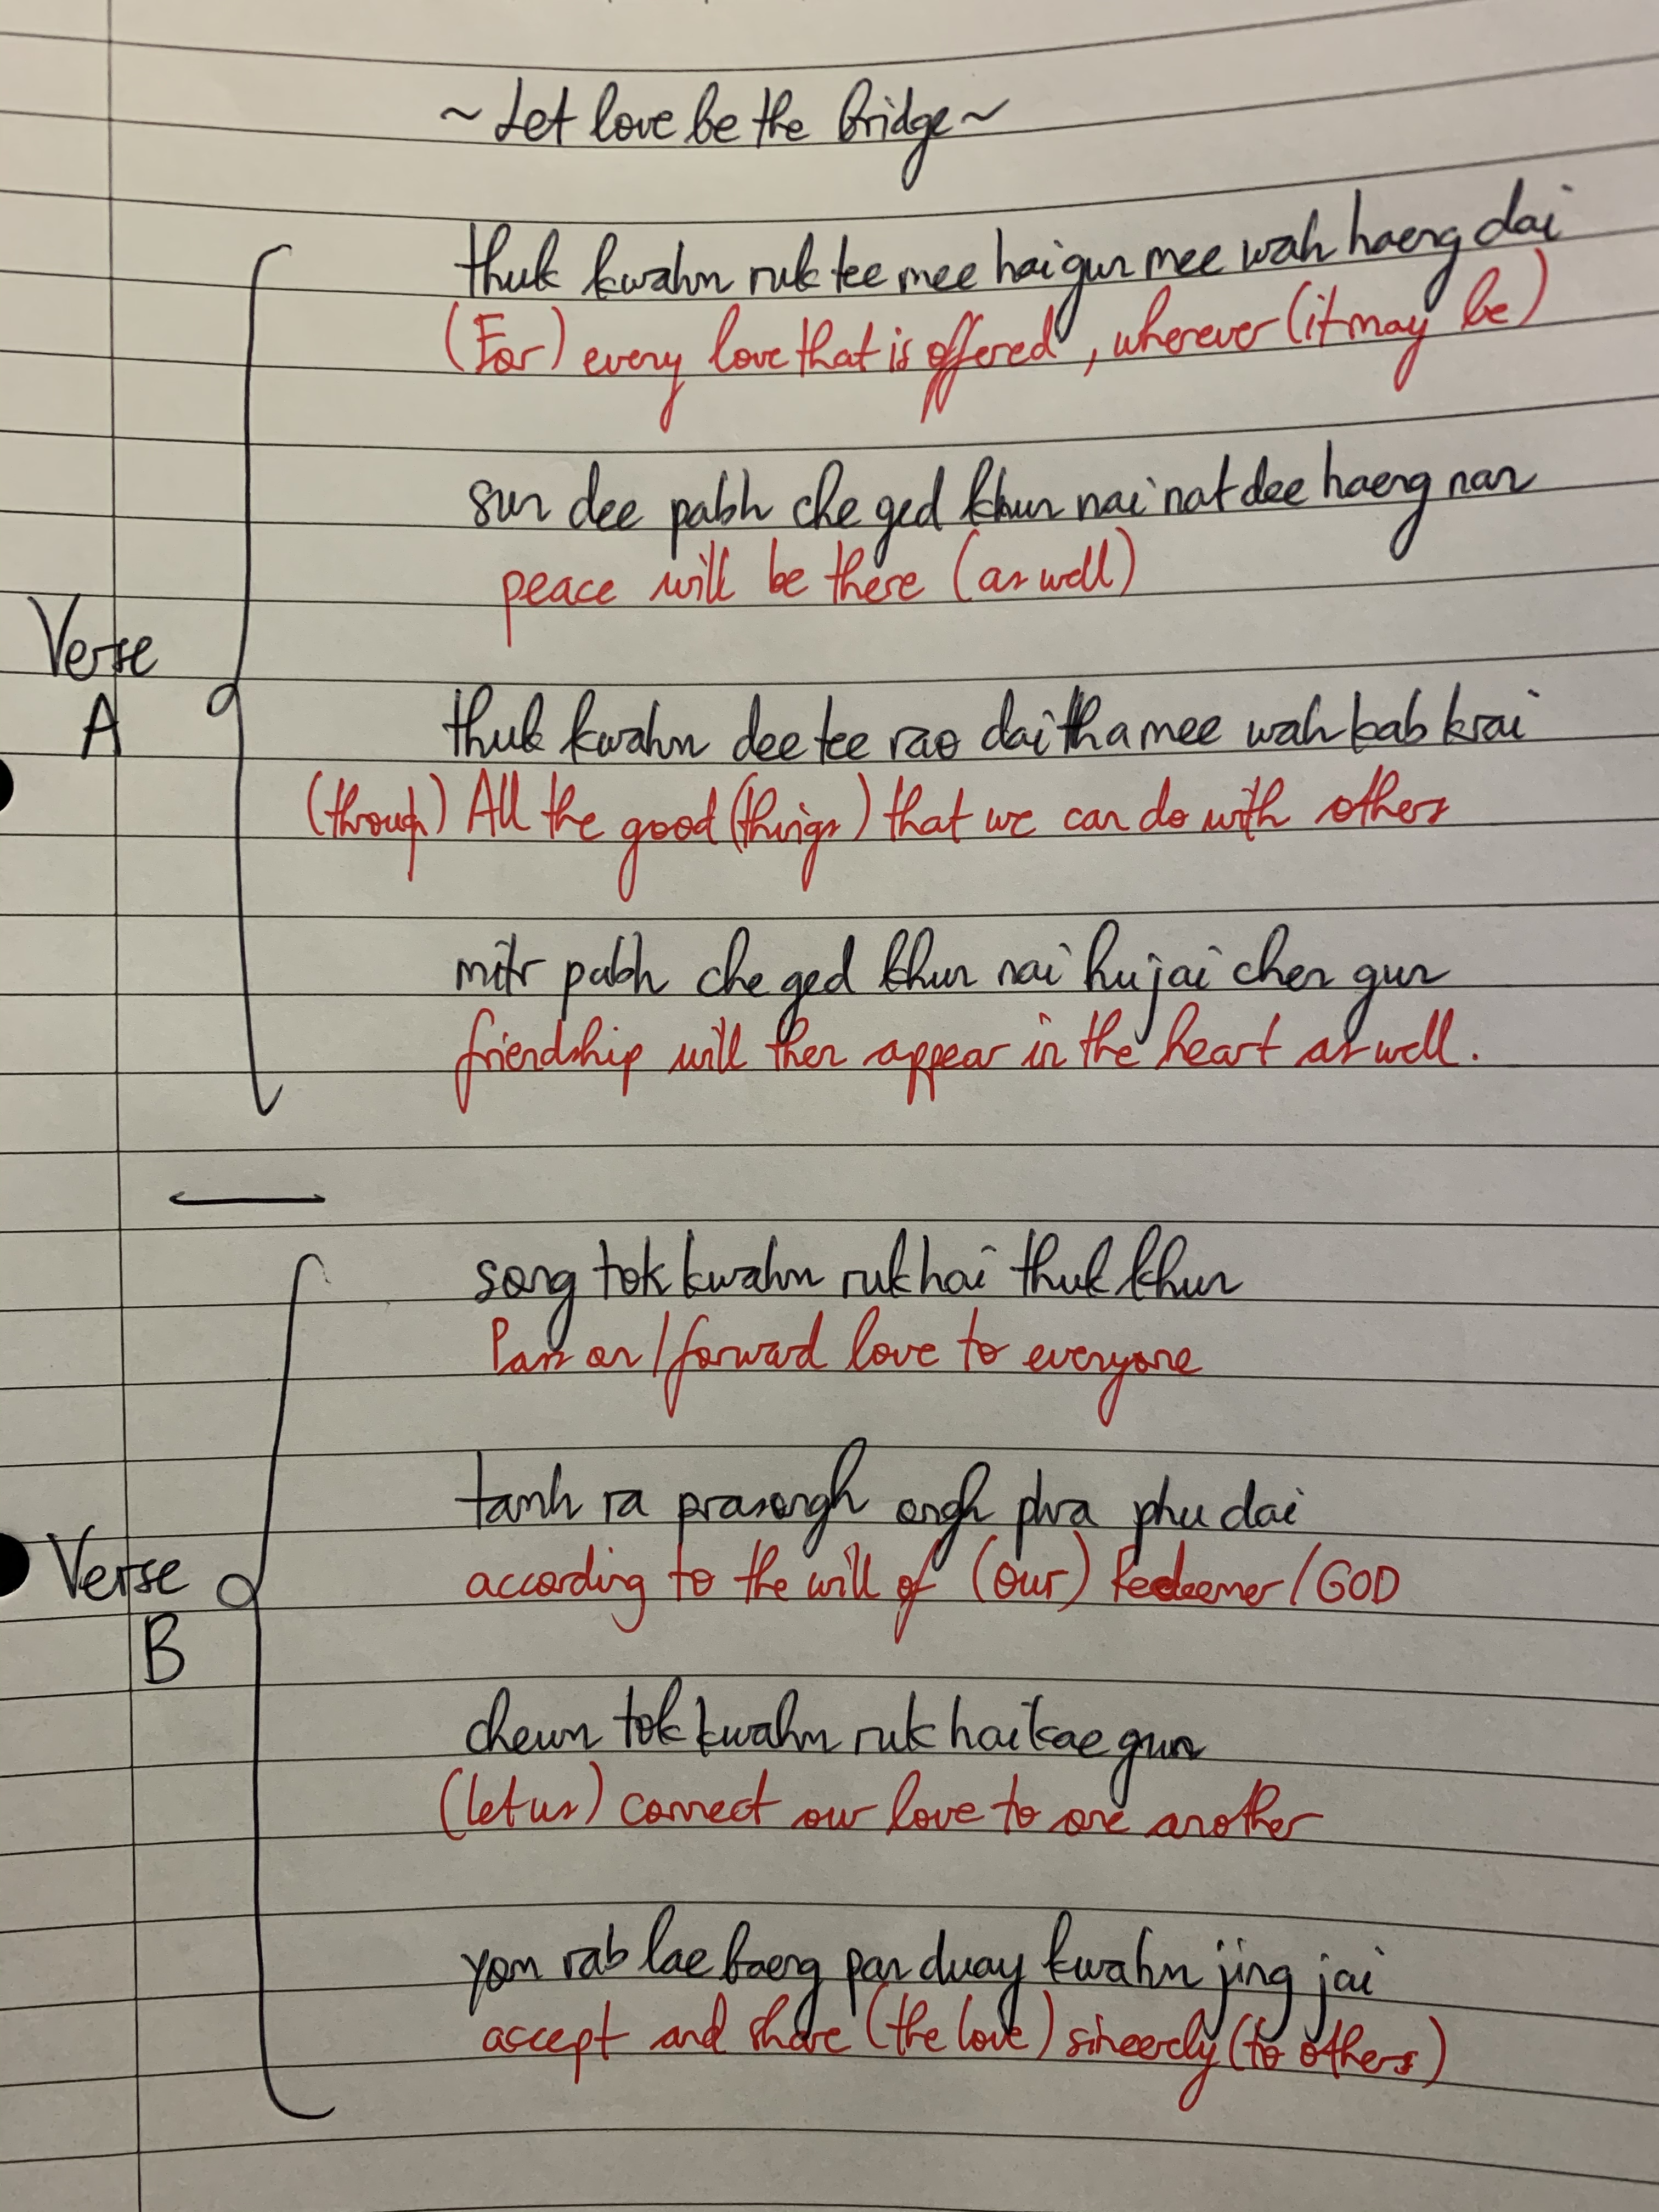 ~Let love be the bridge~
thuk kwahm ruk tee mee hai gun mee wah haeng dai
(For) every love that is offered, wherever (it may be)
sun dee pabh che ged khun nai nat dee haeng nan
peace will be there (as well)
Verse
A
thuk kwahm dee tee rao dai tha mee wah kab krai
(through) All the good (things) that we can do with others
mitr pabh che ged khun nai hu jai chen gun
friendship will then appear in the heart as well.
song tok kwahm ruk hai thuk khun
Pass on/forward love to everyone
tamh ra prasongh ongh phra phu dai
according to the will of (our) Redeemer/GOD
Verse
B
cheum tok kwahm ruk hai kae gun
(let us) connect our love to one another
yom rab lae baeng pan duay kwahm jing jai
accept and share (the love) sincerely (to others)